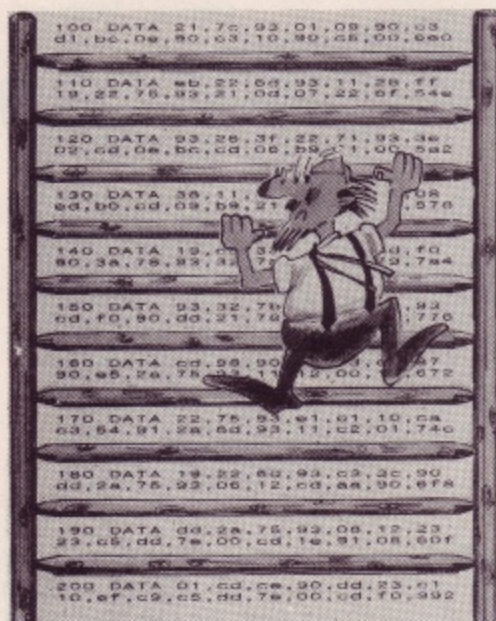 100 DATA 21,7c,93,01,09,90,c3
d1,bc,0e,90,c3,10,90,c5,00,6e0
110 DATA eb,22,6d,93,11,28,ff
19,22,75,93,21,0d,07,22,6f,54e
120 DATA 93,26,3f,22,71,93,3e
02,cd,0e,bc,cd,06,b9,21,00,5a2
130 DATA 38,11 08
ed,b0,cd,09,b9,21 576
140 DATA 19 f0
90,3a,78,93 7a4
150 DATA 93,32,7b 93
cd,f0,90,dd,21 776
160 DATA cd,98,90
90,e5,2a,75,93,11,12,00 672
170 DATA 22,75,93,e1,c1,10,ca
c3,54,91,2a,6d,93,11,c2,01,74c
180 DATA 19,22,6d,93,c3,3c,90
dd,2a,75,93,06,12,cd,aa,90,6f8
190 DATA dd,2a,75,93,06,12,23
23,c5,dd,7e,00,cd,1e,91,06,60f
200 DATA 01,cd,ce,90,dd,23,c1
10,ef,c9,c5,dd,7e,00,cd,f0,992